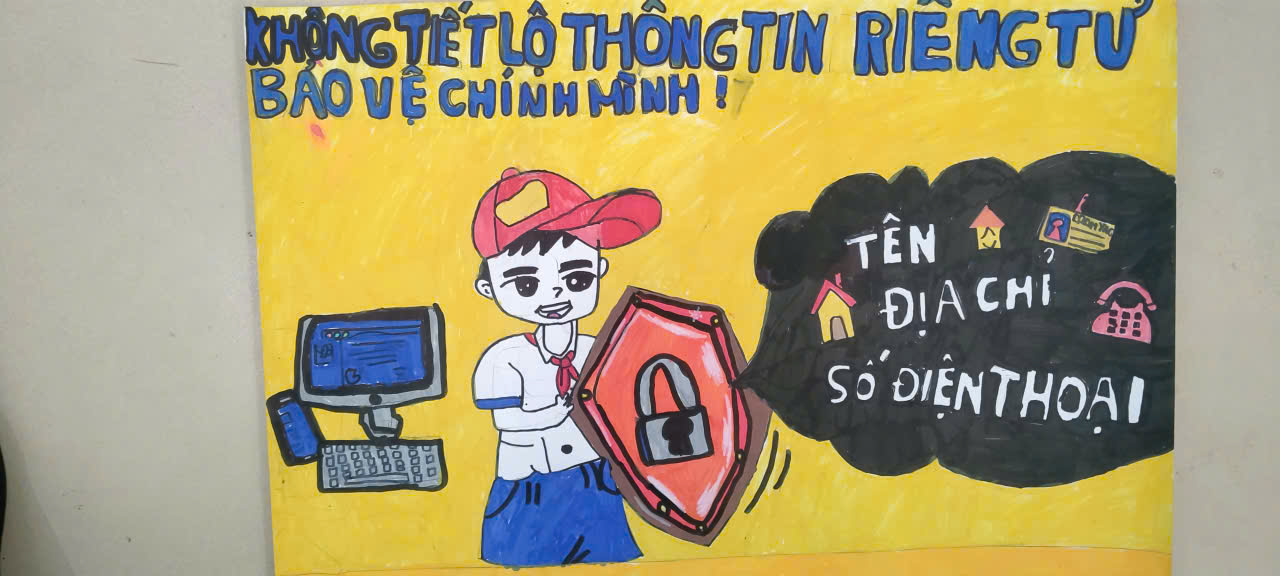 KHÔNG TIẾT LỘ THÔNG TIN RIÊNG TƯ
BẢO VỆ CHÍNH MÌNH !
TÊN
ĐỊA CHỈ
SỐ ĐIỆN THOẠI